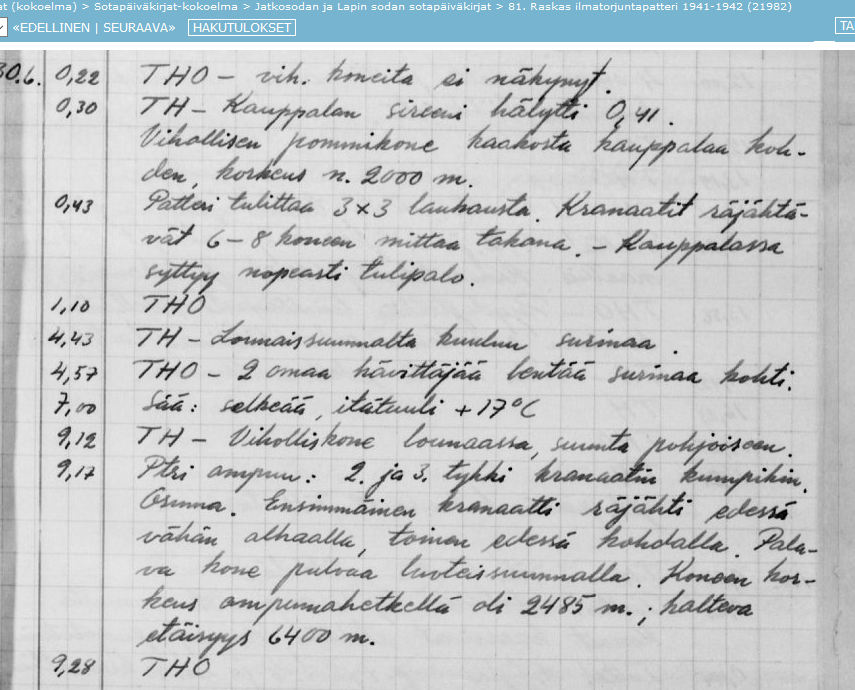 at (kokoelma) > Sotapäiväkirjat-kokoelma > Jatkosodan ja Lapin sodan sotapäiväkirjat > 81. Raskas ilmatorjuntapatteri 1941-1942 (21982)
«EDELLINEN | SEURAAVA» HAKUTULOKSET TA
30.6. 0,22 THO – vih. koneita ei näkynyt.
0,30 TH – Kauppalan sireeni hälytti 0,41.
Vihollisen pommikone kaakosta kauppalaa koh-
den, korkeus n. 2000 m.
0,43 Patteri tulittaa 3x3 laukausta. Kranaatit räjähtä-
vät 6–8 koneen mittaa takana. – Kauppalassa
syttyy nopeasti tulipalo.
1,10 THO
4,43 TH – Lounaissuunnalta kuuluu surinaa.
4,57 THO – 2 omaa hävittäjää lentää surinaa kohti.
7,00 Sää: selkeää, itätuuli +17°C
9,12 TH – Vihollliskone lounaassa, suunta pohjoiseen.
9,17 Ptri ampuu: 2. ja 3. tykki kranaatin kumpikin.
Osuma. Ensimmäinen kranaatti räjähti edessä
vähän alhaalla, toinen edessä kohdalla. Pala-
va kone putoaa luoteissuunnalla. Koneen kor-
keus ampumahetkellä oli 2485 m.; kalteva
etäisyys 6400 m.
9,28 THO